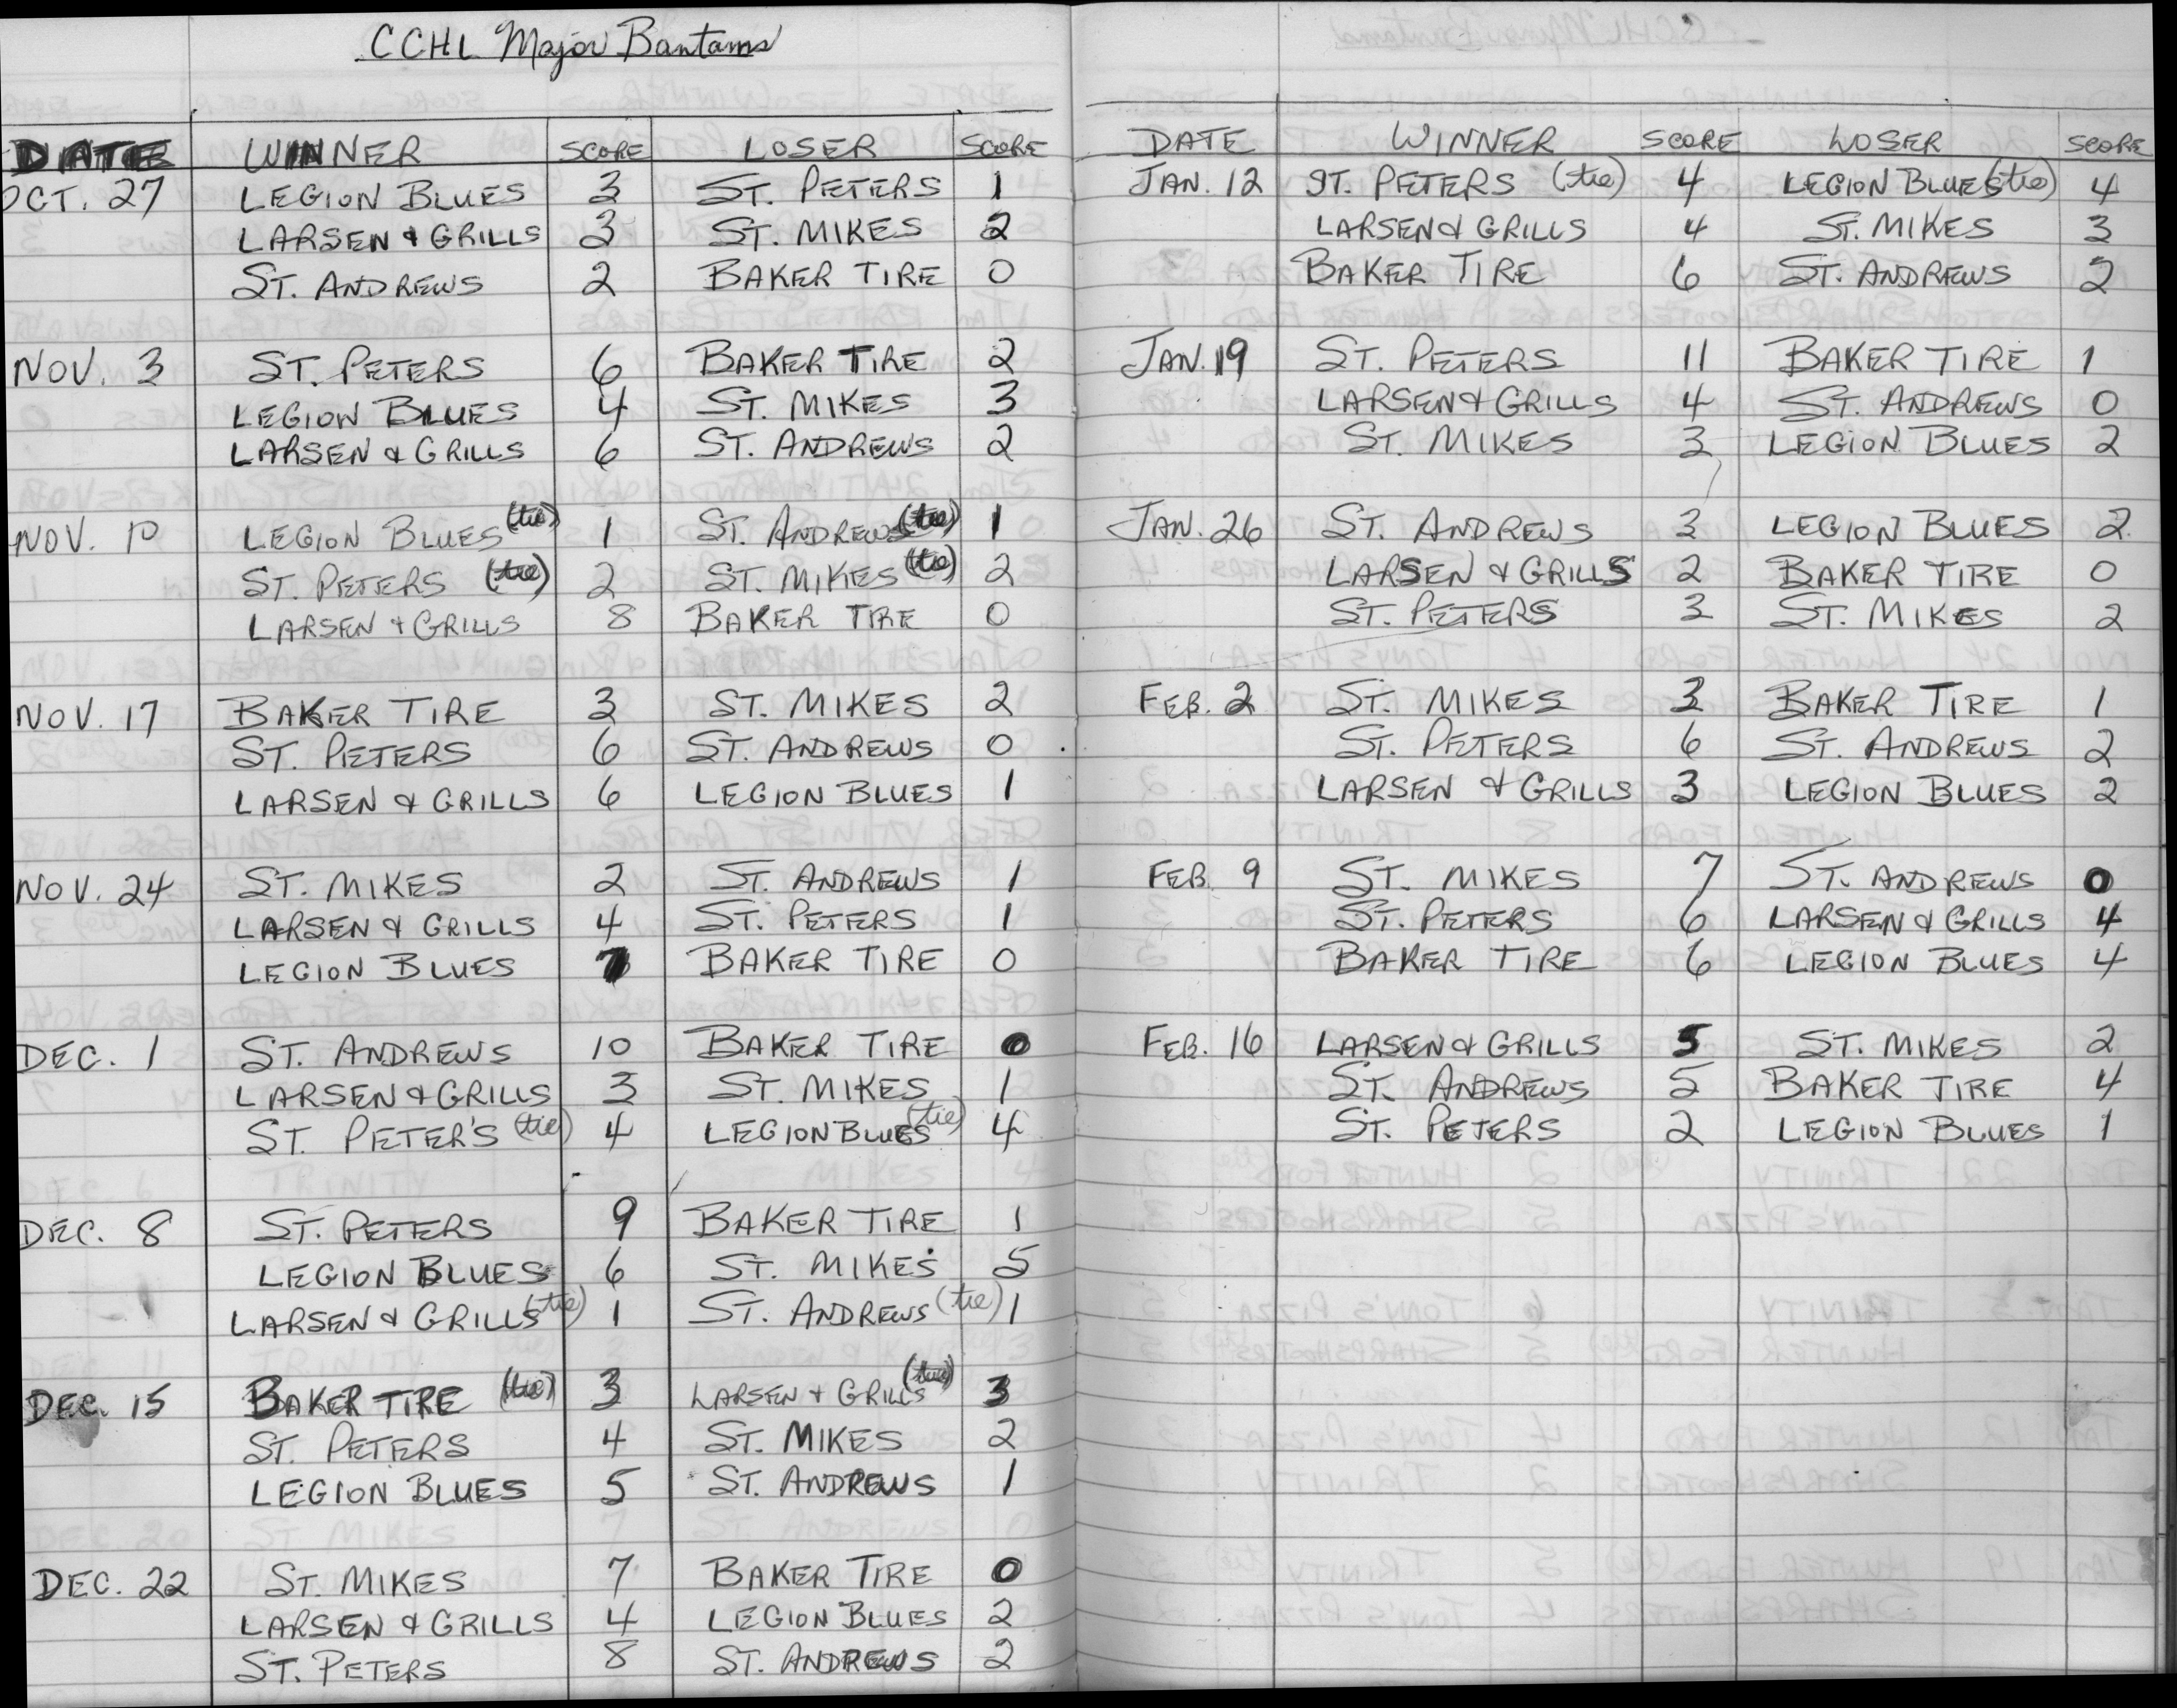 CCHL Major Bantams
DATE WINNER SCORE LOSER SCORE
OCT. 27 LEGION BLUES 3 ST. PETERS 1
LARSEN & GRILLS 3 ST. MIKES 2
ST. ANDREWS 2 BAKER TIRE 0
NOV. 3 ST. PETERS 6 BAKER TIRE 2
LEGION BLUES 4 ST. MIKES 3
LARSEN & GRILLS 6 ST. ANDREWS 2
NOV. 10 LEGION BLUES (tie) 1 ST. ANDREWS (tie) 1
ST. PETERS (tie) 2 ST. MIKES (tie) 2
LARSEN & GRILLS 8 BAKER TIRE 0
NOV. 17 BAKER TIRE 3 ST. MIKES 2
ST. PETERS 6 ST. ANDREWS 0
LARSEN & GRILLS 6 LEGION BLUES 1
NOV. 24 ST. MIKES 2 ST. ANDREWS 1
LARSEN & GRILLS 4 ST. PETERS 1
LEGION BLUES 7 BAKER TIRE 0
DEC. 1 ST. ANDREWS 10 BAKER TIRE 0
LARSEN & GRILLS 3 ST. MIKES 1
ST. PETER'S (tie) 4 LEGION BLUES (tie) 4
DEC. 8 ST. PETERS 9 BAKER TIRE 1
LEGION BLUES 6 ST. MIKES 5
LARSEN & GRILLS (tie) 1 ST. ANDREWS (tie) 1
DEC. 15 BAKER TIRE (tie) 3 LARSEN & GRILLS (tie) 3
ST. PETERS 4 ST. MIKES 2
LEGION BLUES 5 ST. ANDREWS 1
DEC. 22 ST. MIKES 7 BAKER TIRE 0
LARSEN & GRILLS 4 LEGION BLUES 2
ST. PETERS 8 ST. ANDREWS 2
DATE WINNER SCORE LOSER SCORE
JAN. 12 ST. PETERS (tie) 4 LEGION BLUES (tie) 4
LARSEN & GRILLS 4 ST. MIKES 3
BAKER TIRE 6 ST. ANDREWS 2
JAN. 19 ST. PETERS 11 BAKER TIRE 1
LARSEN & GRILLS 4 ST. ANDREWS 0
ST. MIKES 3 LEGION BLUES 2
JAN. 26 ST. ANDREWS 3 LEGION BLUES 2
LARSEN & GRILLS 2 BAKER TIRE 0
ST. PETERS 3 ST. MIKES 2
FEB. 2 ST. MIKES 3 BAKER TIRE 1
ST. PETERS 6 ST. ANDREWS 2
LARSEN & GRILLS 3 LEGION BLUES 2
FEB. 9 ST. MIKES 7 ST. ANDREWS 0
ST. PETERS 6 LARSEN & GRILLS 4
BAKER TIRE 6 LEGION BLUES 4
FEB. 16 LARSEN & GRILLS 5 ST. MIKES 2
ST. ANDREWS 5 BAKER TIRE 4
ST. PETERS 2 LEGION BLUES 1